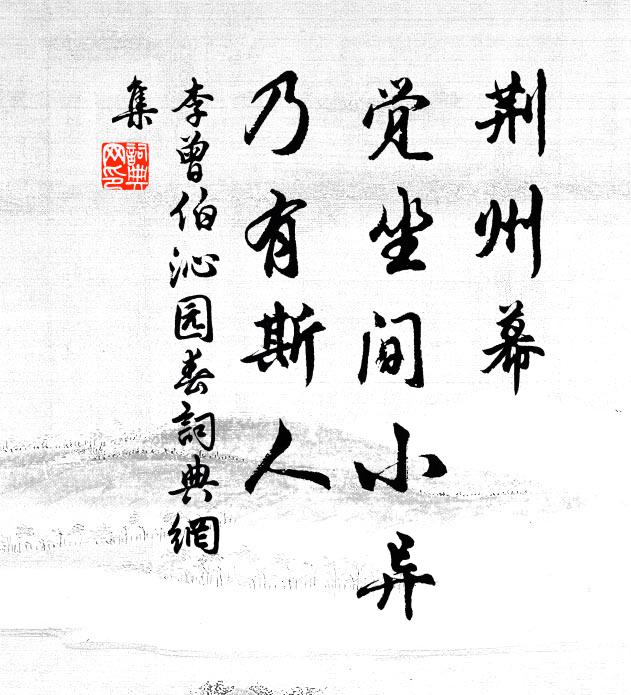 荆州幕
觉坐间小异
乃有斯人
李曾伯沁园春詞典網
集
詞典
网印